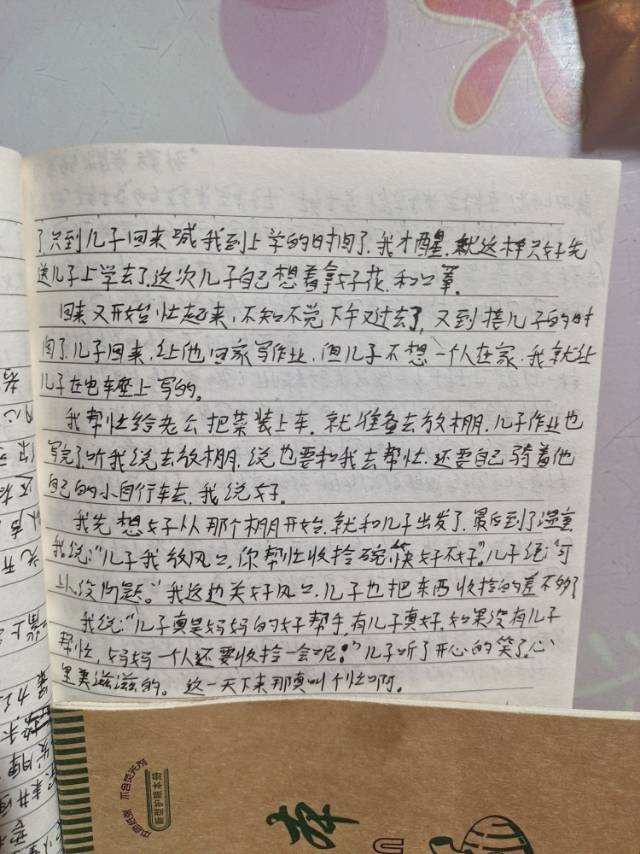 了,只到儿子回来喊我到上学的时间了,我才醒,就这样只好先
送儿子上学去了,这次儿子自己想着拿好花,和口罩,
回来又开始忙起来,不知不觉下午又过去了,又到接儿子的时
间了,儿子回来,让他回家写作业,但儿子不想一个人在家,我就让
儿子在电车垫上写的。
我帮忙给老公把菜装上车,就准备去放棚,儿子作业也
写完了,听我说去放棚,说也要和我去帮忙,还要自己骑着他
自己的小自行车去,我说好。
我先想好从那个棚开始,就和儿子出发了,最后到了温室
我说:“儿子我放风口,你帮忙收拾碗筷好不好”,儿子说:“可
以没问题。”我这边关好风口,儿子也把东西收拾的差不多了
我说:“儿子真是妈妈的好帮手,有儿子真好,如果没有儿子
帮忙,妈妈一个人还要收拾一会呢!”儿子听了开心的笑了,心
里美滋滋的。这一天下来那真叫个忙啊。